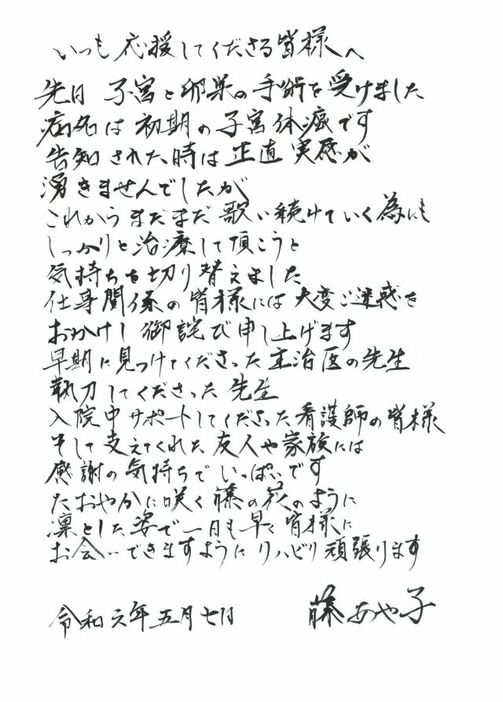 いつも応援してくださる皆様へ
先日 子宮と卵巣の手術を受けました
病名は初期の子宮体癌です
告知された時は正直実感が
湧きませんでしたが
これからまだまだ歌い続けていく為にも
しっかりと治療して頂こうと
気持ちを切り替えました
仕事関係の皆様には大変ご迷惑を
おかけし御詫び申し上げます
早期に見つけてくださった主治医の先生
執刀してくださった先生
入院中サポートしてくださった看護師の皆様
そして支えてくれた友人や家族には
感謝の気持ちでいっぱいです
たおやかに咲く藤の花のように
凜とした姿で一日も早く皆様に
お会いできますようにリハビリ頑張ります
令和元年五月七日 藤あや子